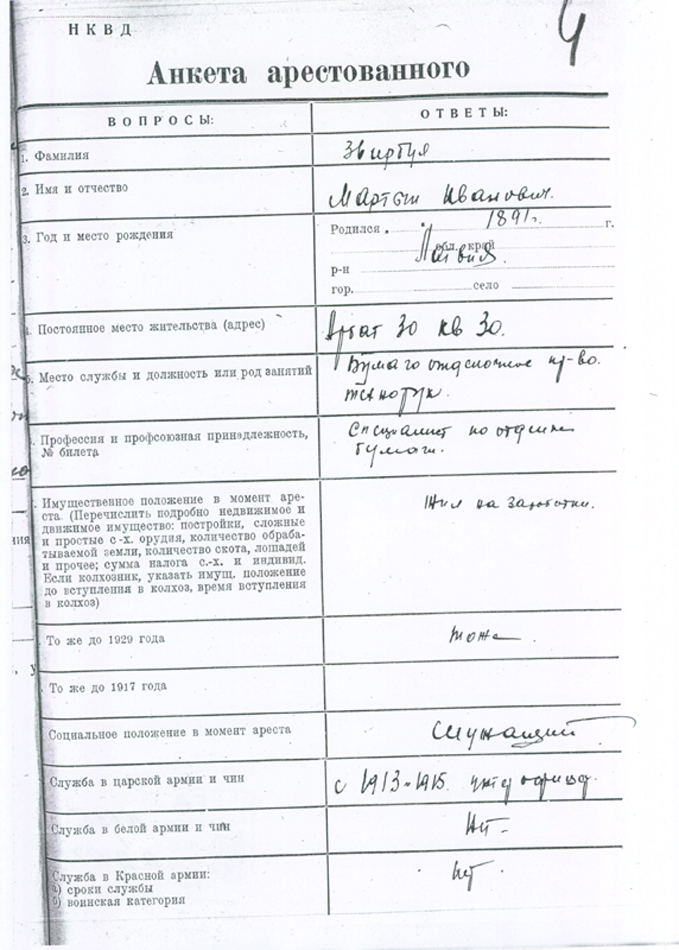 НКВД
4
Анкета арестованного
ВОПРОСЫ:
ОТВЕТЫ:
1. Фамилия
Звиргбул
2. Имя и отчество
Мартын Иванович.
3. Год и место рождения
Родился 1891 г. г.
обл. край
Латвия.
р-н
гор. село
4. Постоянное место жительства (адрес)
Арбат 30 кв 30.
5. Место службы и должность или род занятий
Бумаго отделочное пр-во.
технорук.
. Профессия и профсоюзная принадлежность,
№ билета
Специалист по отделке
бумаги.
. Имущественное положение в момент аре-
ста. (Перечислить подробно недвижимое и
движимое имущество: постройки, сложные
и простые с.-х. орудия, количество обраба-
тываемой земли, количество скота, лошадей
и прочее; сумма налога с.-х. и индивид.
Если колхозник, указать имущ. положение
до вступления в колхоз, время вступления
в колхоз)
Жил на заработки.
То же до 1929 года
тоже.
То же до 1917 года
Социальное положение в момент ареста
Служащий
Служба в царской армии и чин
с 1913-1915. унтер офицер.
Служба в белой армии и чин
Нет
Служба в Красной армии:
а) сроки службы
б) воинская категория
нет.